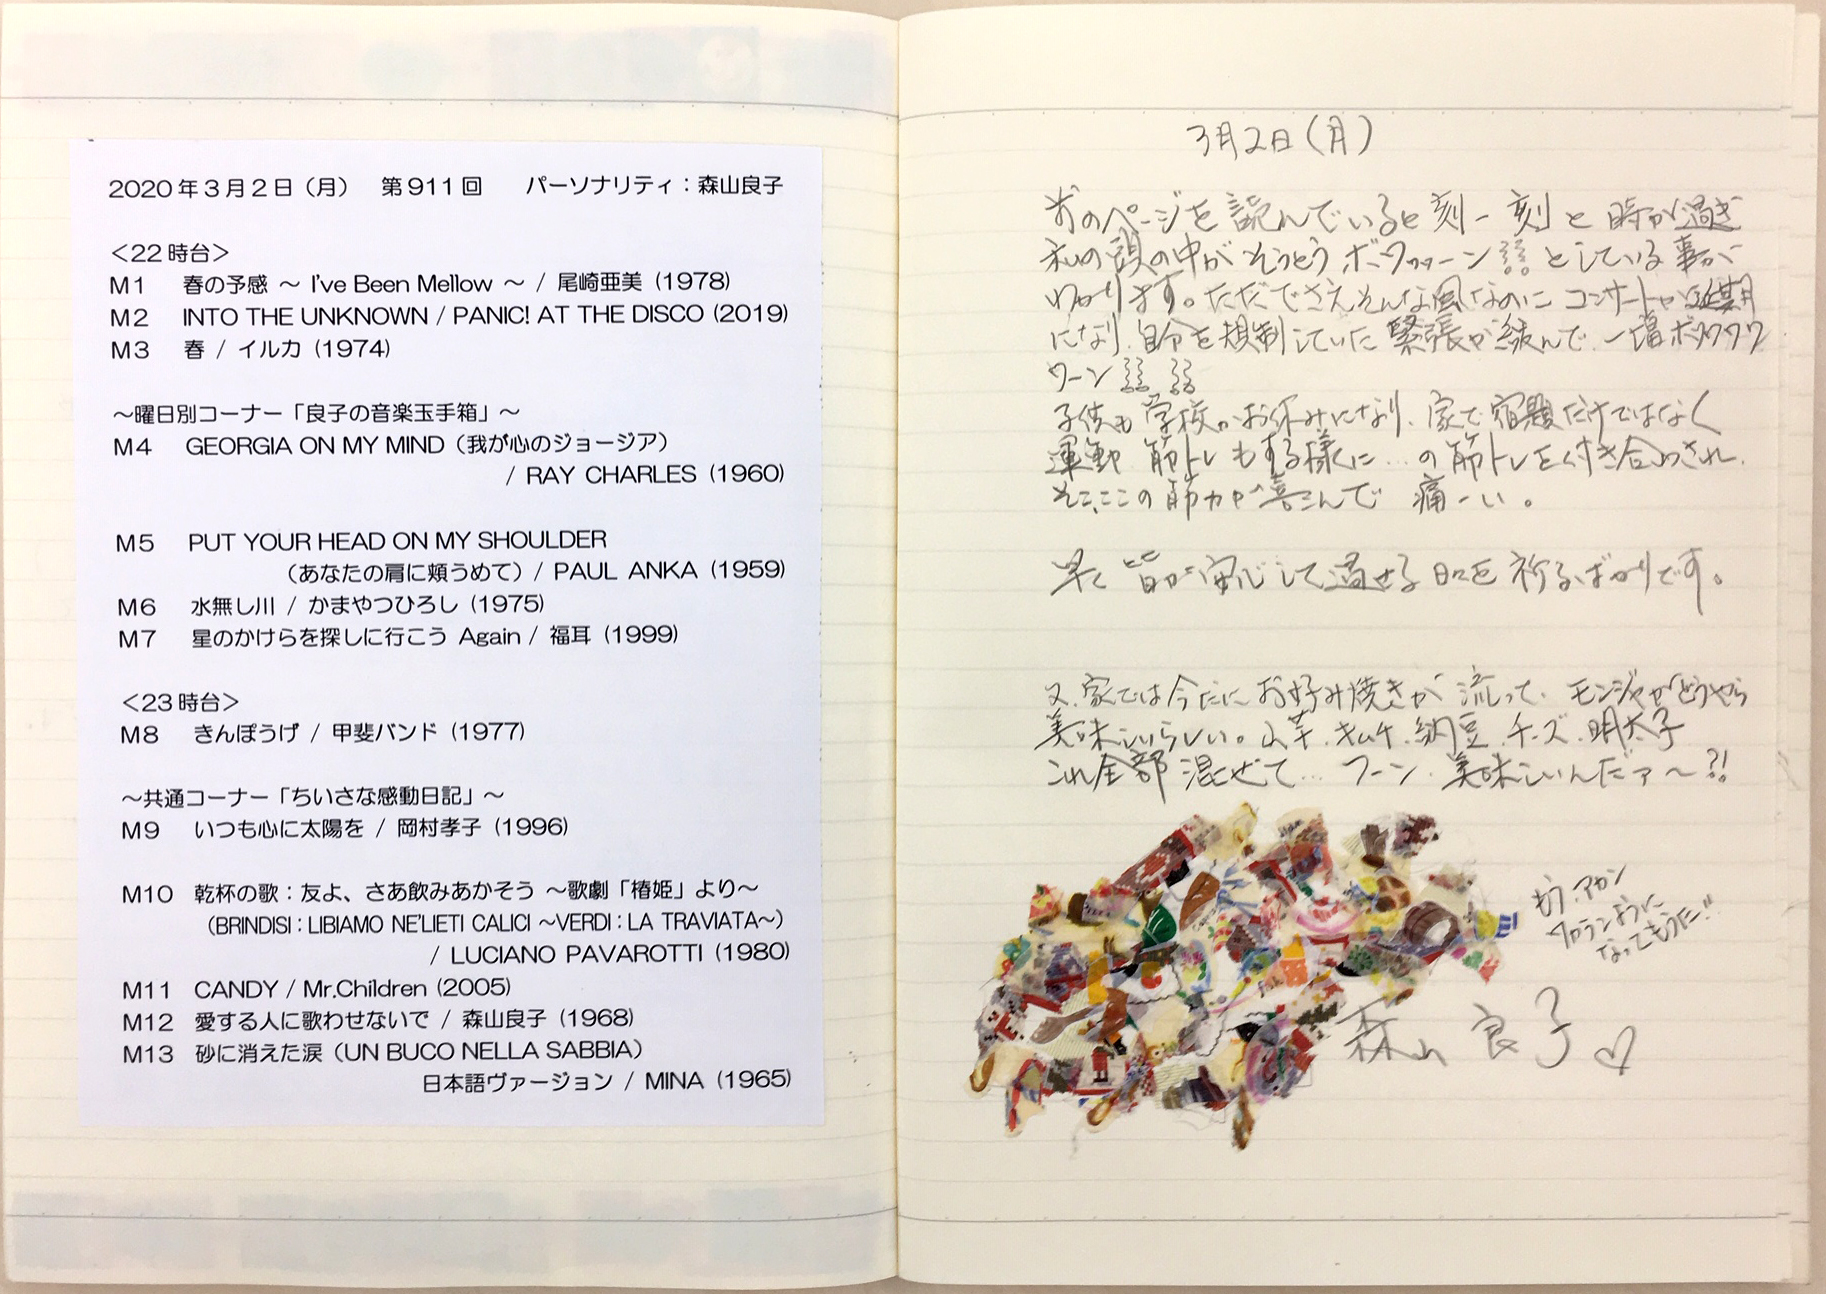 2020年3月2日（月）　第911回　　パーソナリティ：森山良子
＜22時台＞
M1　春の予感 ～ I've Been Mellow ～ / 尾崎亜美（1978）
M2　INTO THE UNKNOWN / PANIC! AT THE DISCO（2019）
M3　春 / イルカ（1974）
～曜日別コーナー「良子の音楽玉手箱」～
M4　GEORGIA ON MY MIND（我が心のジョージア）
/ RAY CHARLES（1960）
M5　PUT YOUR HEAD ON MY SHOULDER
（あなたの肩に頬うめて）/ PAUL ANKA（1959）
M6　水無し川 / かまやつひろし（1975）
M7　星のかけらを探しに行こう Again / 福耳（1999）
＜23時台＞
M8　きんぽうげ / 甲斐バンド（1977）
～共通コーナー「ちいさな感動日記」～
M9　いつも心に太陽を / 岡村孝子（1996）
M10　乾杯の歌：友よ、さあ飲みあかそう ～歌劇「椿姫」より～
（BRINDISI：LIBIAMO NE'LIETI CALICI ～VERDI：LA TRAVIATA～）
/ LUCIANO PAVAROTTI（1980）
M11　CANDY / Mr.Children（2005）
M12　愛する人に歌わせないで / 森山良子（1968）
M13　砂に消えた涙（UN BUCO NELLA SABBIA）
日本語ヴァージョン / MINA（1965）
3月2日（月）
前のページを読んでいると刻一刻と時が過ぎ
私の頭の中がそうとうボーワァーンとしている事が
わかります。ただでさえそんな風なのにコンサートが延期
になり、自分を規制していた緊張が緩んで、一層ボワワワワ
ワーン
子供も学校がお休みになり、家で宿題だけではなく
運動、筋トレもする様に…の筋トレを付き合わされ、
そこ、ここの筋力が喜こんで　痛ーい。
早く皆が安心して過せる日々を祈るばかりです。
又、家では今だにお好み焼きが流って、モンジャがどうやら
美味しいらしい。山芋、キムチ、納豆、チーズ、明太子
これ全部混ぜて…フーン、美味しいんだァ～?!
もう、アカン
ワカランように
なってもうた!!
森山良子♡